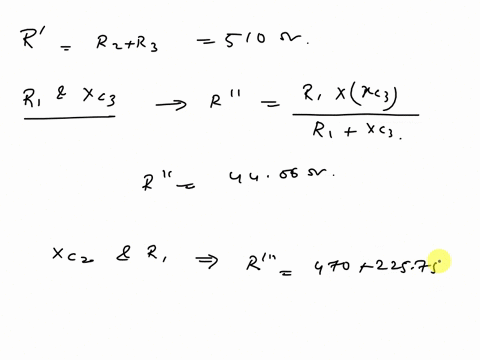 R' = R2+R3 = 510 Ω.
R1 & XC3 → R'' = R1 X(XC3) / R1 + XC3.
R'' = 44.06 Ω.
XC2 & R1 ⇒ R''' = 470 + 225.75